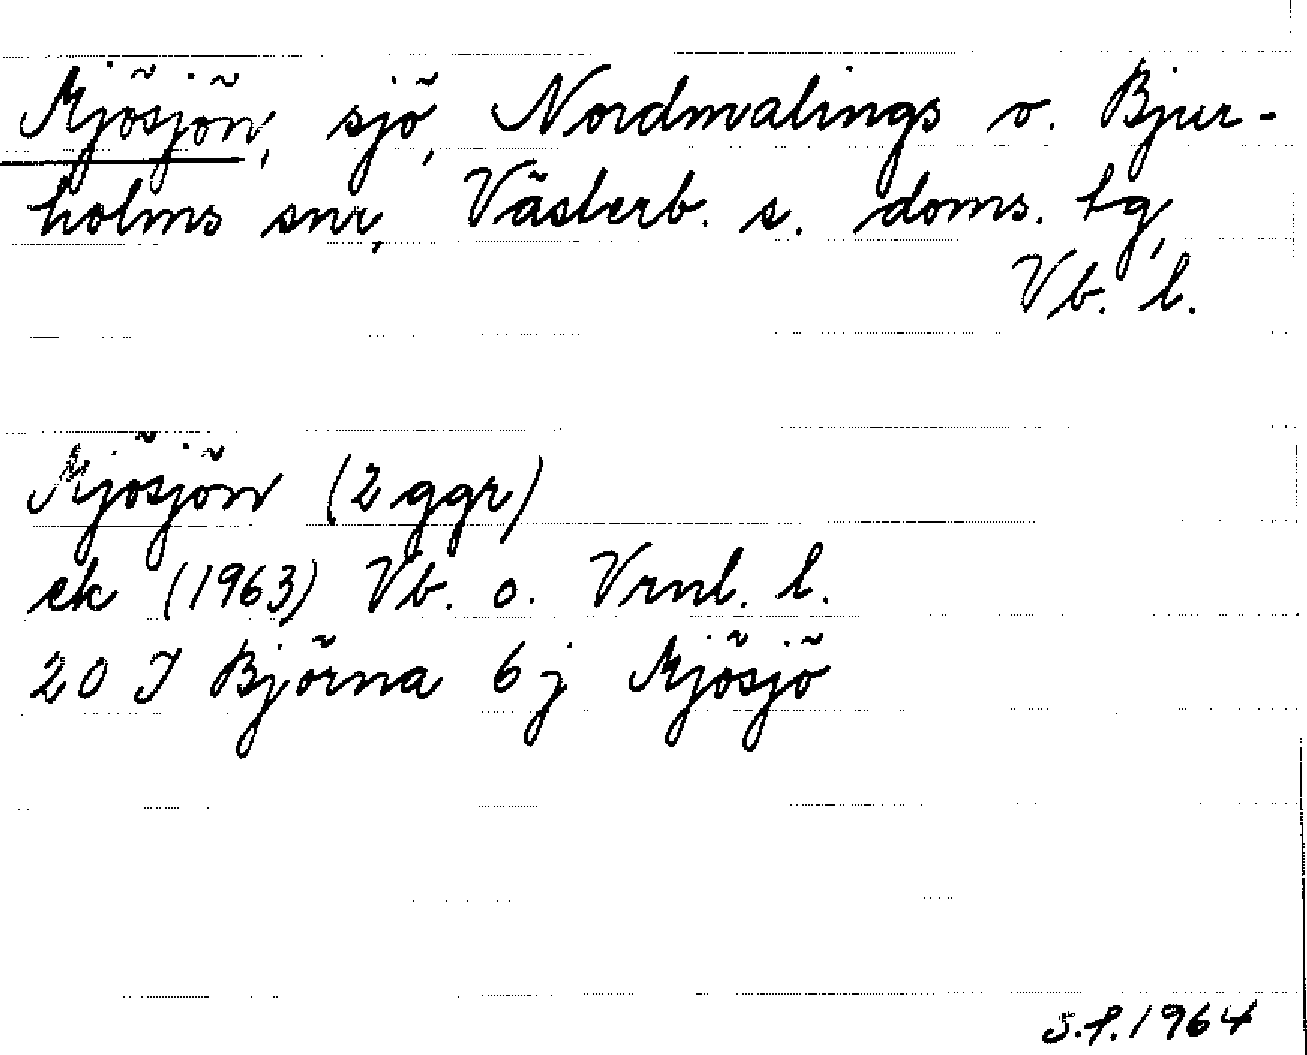 Mjösjön, sjö, Nordmalings o. Bjur-
holms snr, Västerb. s. doms. tg,
Vb. l.
Mjösjön (2 ggr)
ek (1963) Vb. o. Vrnl. l.
20 J Björna 6 j Mjösjö
S.f. 1964